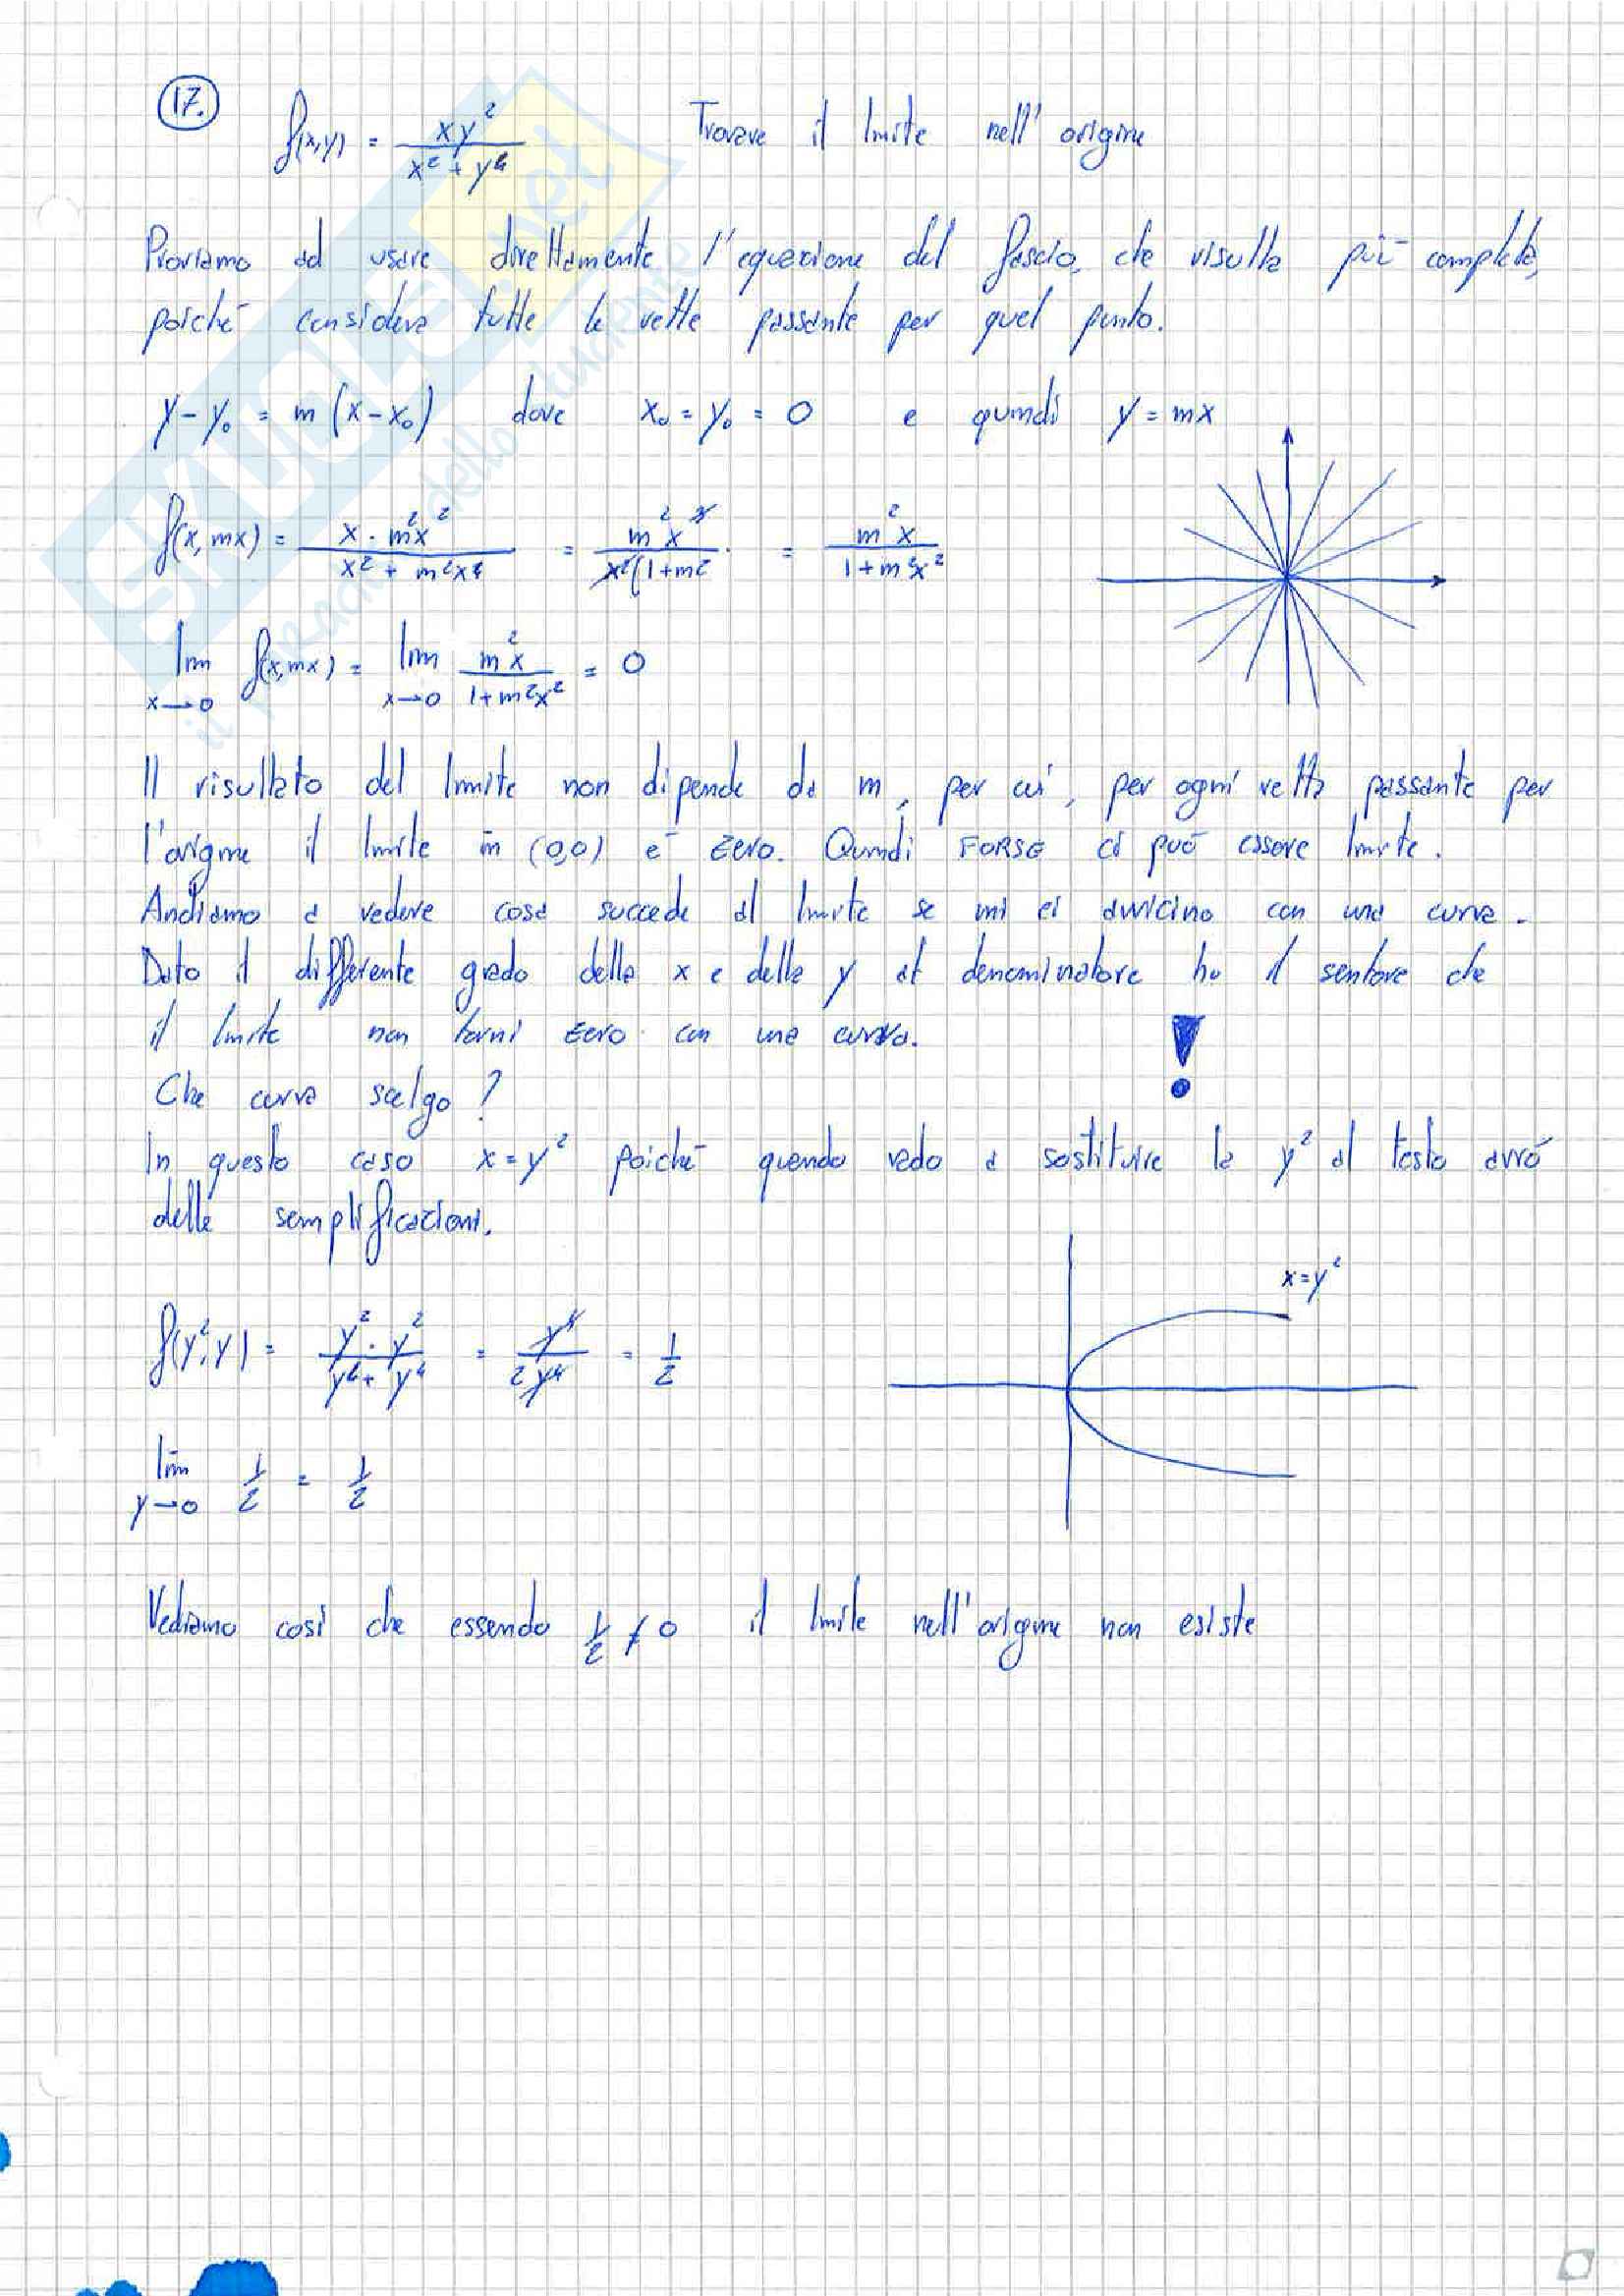 17.
f(x,y) = xy² / x² + y⁴ Trovare il limite nell' origine
Proviamo ad usare direttamente l'equazione del fascio, che risulta più completa,
poiché considera tutte le rette passante per quel punto.
y - y₀ = m (x - x₀) dove x₀ = y₀ = 0 e quindi y = mx
f(x, mx) = x · m²x² / x² + m²x⁴ = m²x³ / x²(1+m² = m²x / 1+m²x²
lim x→0 f(x,mx) = lim x→0 m²x / 1+m²x² = 0
Il risultato del limite non dipende da m, per cui, per ogni retta passante per
l'origine il limite in (0,0) è zero. Quindi FORSE ci può essere limite.
Andiamo a vedere cosa succede al limite se mi ci avvicino con una curva.
Dato il differente grado della x e della y al denominatore ho il sentore che
il limite non torni zero con una curva. !
Che curva scelgo?
In questo caso x = y² poiché quando vado a sostituire la y² al testo avrò
delle semplificazioni.
x=y²
f(y²,y) = y² · y² / y⁴ + y⁴ = y⁴ / 2y⁴ = 1/2
lim y→0 1/2 = 1/2
Vediamo così che essendo 1/2 ≠ 0 il limite nell'origine non esiste
SKUOLA.net
il paradiso dello studente